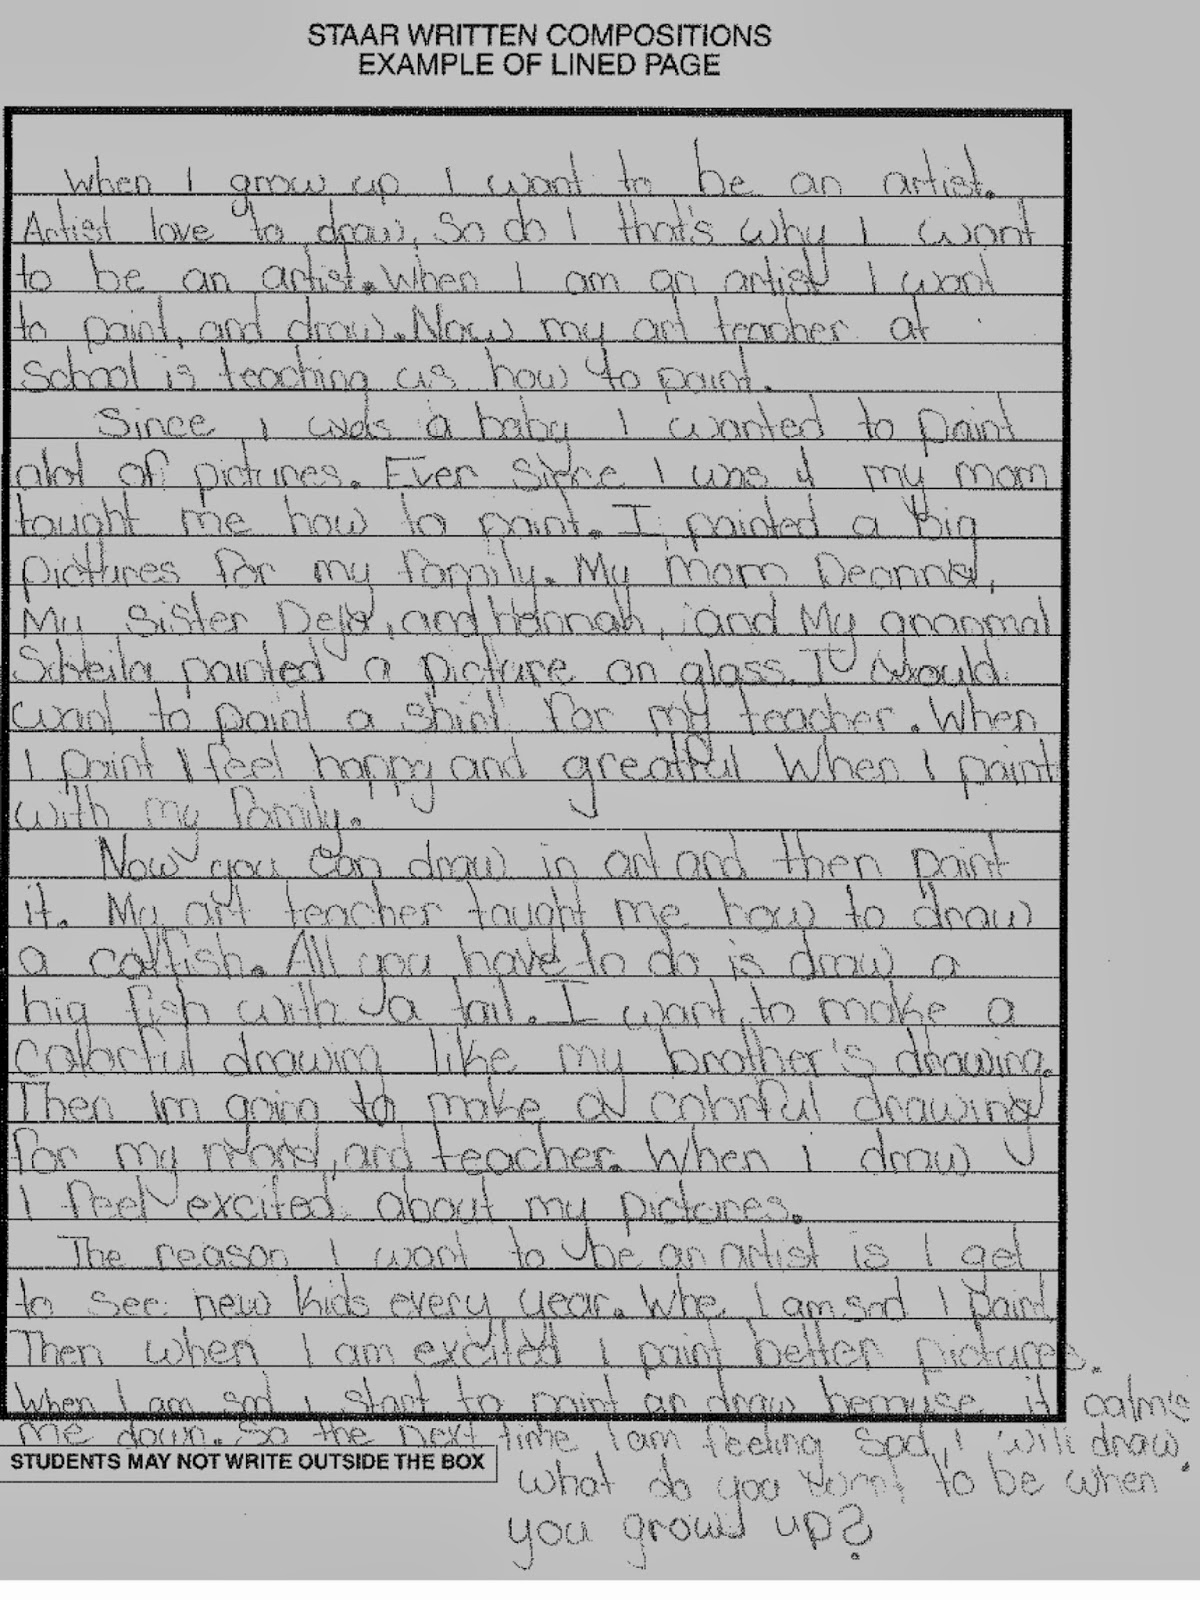 STAAR WRITTEN COMPOSITIONS
EXAMPLE OF LINED PAGE
When I grow up I want to be an artist.
Artist love to draw, So do I that's why I want
to be an artist. When I am an artist I want
to paint, and draw. Now my art teacher at
School is teaching us how to paint.
Since I was a baby I wanted to paint
alot of pictures. Ever Since I was 4 my mom
tought me how to paint. I painted a big
pictures for my family. My Mom Deanna,
My Sister Deja, and Hannah, and My
Sheila painted a picture on glass. I would
want to paint a shirt for my teacher. When
I paint I feel happy and greatful When I paint
with my family.
Now you can draw in art and then paint
it. My art teacher tought me how to draw
a catfish. All you have to do is draw a
big fish with a tail. I want to make a
Colorful drawing like my brother's drawing.
Then Im going to make a colorful drawing
for my and teacher. When i draw
I feel excited about my pictures.
The reason I want to be an artist is I get
to see new kids every year. Whe I am sad I paint
Then when I am excited I paint better pictures.
When I am sad I start to paint or draw because it calm's
me down. So the next time I am feeling sad, I will draw.
STUDENTS MAY NOT WRITE OUTSIDE THE BOX
what do you want to be when
you grow up?